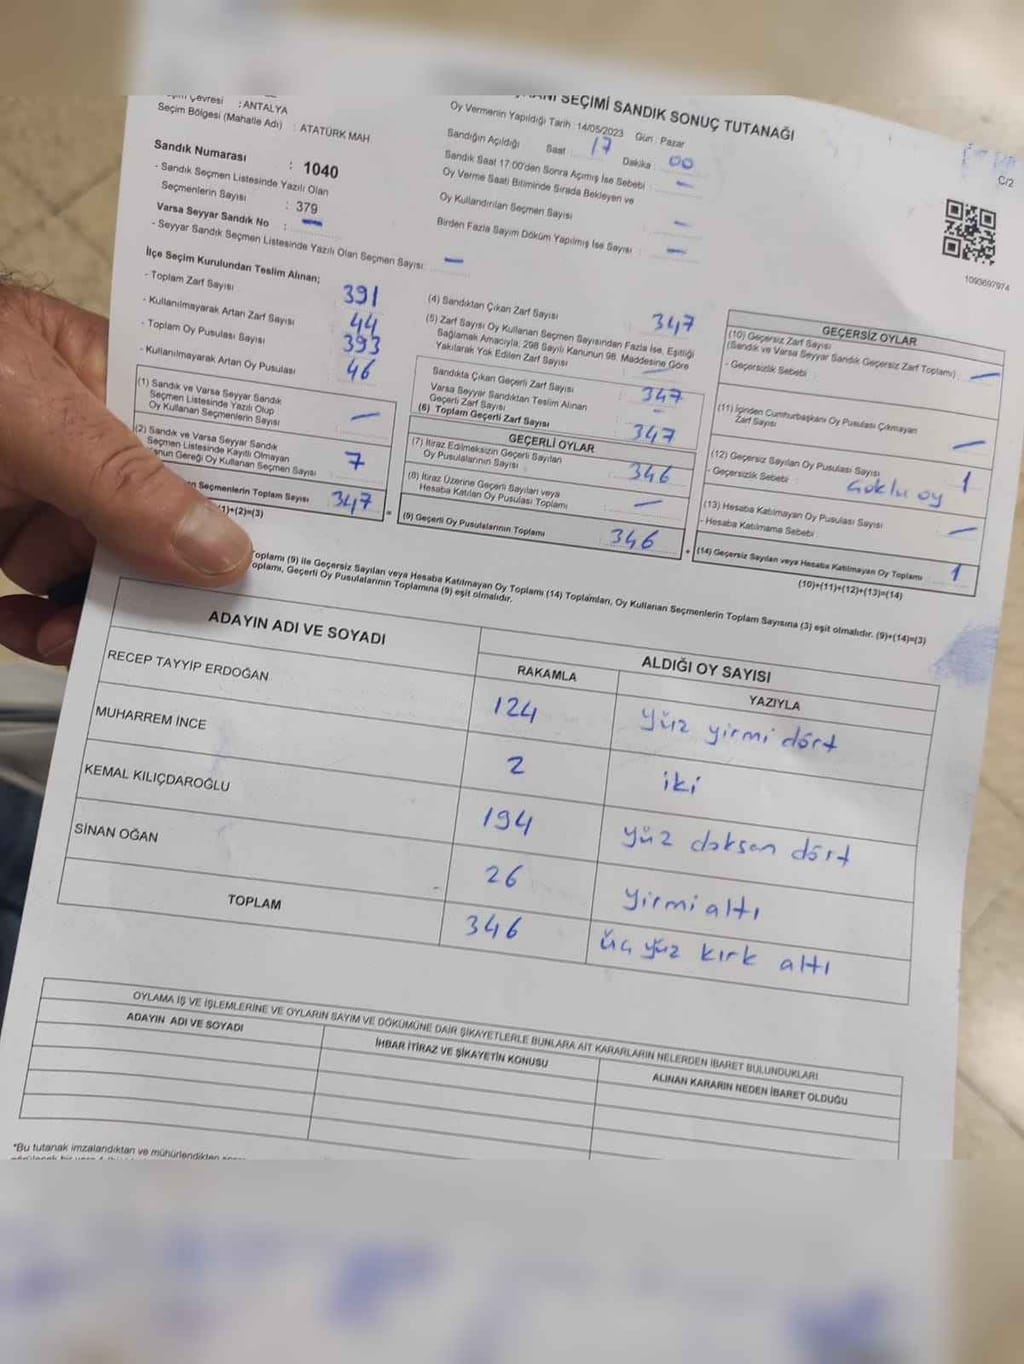 SEÇİMİ SANDIK SONUÇ TUTANAĞI
Seçim Çevresi : ANTALYA
Seçim Bölgesi (Mahalle Adı) : ATATÜRK MAH
Sandık Numarası : 1040
- Sandık Seçmen Listesinde Yazılı Olan
Seçmenlerin Sayısı : 379
Varsa Seyyar Sandık No : —
- Seyyar Sandık Seçmen Listesinde Yazılı Olan Seçmen Sayısı: —
Oy Vermenin Yapıldığı Tarih : 14/05/2023 Gün : Pazar
Sandığın Açıldığı Saat : 17 Dakika : 00
Sandık Saat 17:00'den Sonra Açımış İse Sebebi : —
Oy Verme Saati Bitiminde Sırada Bekleyen ve
Oy Kullandırılan Seçmen Sayısı : —
Birden Fazla Sayım Döküm Yapılmış İse Sayısı : —
C/2
1093697974
İlçe Seçim Kurulundan Teslim Alınan;
- Toplam Zarf Sayısı 391
- Kullanılmayarak Artan Zarf Sayısı 44
- Toplam Oy Pusulası Sayısı 393
- Kullanılmayarak Artan Oy Pusulası 46
(1) Sandık ve Varsa Seyyar Sandık
Seçmen Listesinde Yazılı Olup
Oy Kullanan Seçmenlerin Sayısı —
(2) Sandık ve Varsa Seyyar Sandık
Seçmen Listesinde Kayıtlı Olmayan
Kanun Gereği Oy Kullanan Seçmen Sayısı 7
Seçmenlerin Toplam Sayısı 347
(1)+(2)=(3)
(4) Sandıktan Çıkan Zarf Sayısı 347
(5) Zarf Sayısı Oy Kullanan Seçmen Sayısından Fazla İse, Eşitliği
Sağlamak Amacıyla, 298 Sayılı Kanunun 98. Maddesine Göre
Yakılarak Yok Edilen Zarf Sayısı —
Sandıkta Çıkan Geçerli Zarf Sayısı 347
Varsa Seyyar Sandıktan Teslim Alınan
Geçerli Zarf Sayısı —
(6) Toplam Geçerli Zarf Sayısı 347
GEÇERLİ OYLAR
(7) İtiraz Edilmeksizin Geçerli Sayılan
Oy Pusulalarının Sayısı 346
(8) İtiraz Üzerine Geçerli Sayılan veya
Hesaba Katılan Oy Pusulası Toplamı —
= (9) Geçerli Oy Pusulalarının Toplamı 346
GEÇERSİZ OYLAR
(10) Geçersiz Zarf Sayısı
(Sandık ve Varsa Seyyar Sandık Geçersiz Zarf Toplamı) —
- Geçersizlik Sebebi :
(11) İçinden Cumhurbaşkanı Oy Pusulası Çıkmayan
Zarf Sayısı —
(12) Geçersiz Sayılan Oy Pusulası Sayısı 1
- Geçersizlik Sebebi : Çoklu oy
(13) Hesaba Katılmayan Oy Pusulası Sayısı —
- Hesaba Katılmama Sebebi :
+ (14) Geçersiz Sayılan veya Hesaba Katılmayan Oy Toplamı 1
(10)+(11)+(12)+(13)=(14)
Toplamı (9) ile Geçersiz Sayılan veya Hesaba Katılmayan Oy Toplamı (14) Toplamları, Oy Kullanan Seçmenlerin Toplam Sayısına (3) eşit olmalıdır. (9)+(14)=(3)
Toplamı, Geçerli Oy Pusulalarının Toplamına (9) eşit olmalıdır.
ADAYIN ADI VE SOYADI ALDIĞI OY SAYISI
RAKAMLA YAZIYLA
RECEP TAYYİP ERDOĞAN 124 yüz yirmi dört
MUHARREM İNCE 2 iki
KEMAL KILIÇDAROĞLU 194 yüz doksan dört
SİNAN OĞAN 26 yirmi altı
TOPLAM 346 üç yüz kırk altı
OYLAMA İŞ VE İŞLEMLERİNE VE OYLARIN SAYIM VE DÖKÜMÜNE DAİR ŞİKAYETLERLE BUNLARA AİT KARARLARIN NELERDEN İBARET BULUNDUKLARI
ADAYIN ADI VE SOYADI İHBAR İTİRAZ VE ŞİKAYETİN KONUSU ALINAN KARARIN NEDEN İBARET OLDUĞU
*Bu tutanak imzalandıktan ve mühürlendikten